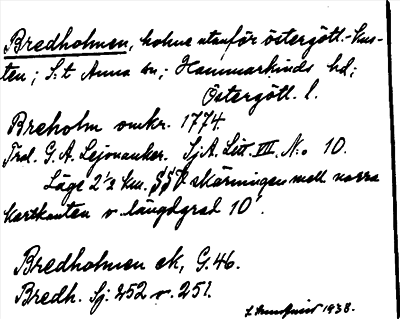 Bredholmen, holme utanför östergötl.-kus-
ten; S:t Anna sn; Hammarkinds hd;
Östergötl. l.
Breholm omkr. 1774.
Trol. G. A. Lejonanker. SjA. Litt. III. N:o 10.
Läge 2½ km. SSV skärningen mell norra
kartkanten o. längdgrad 10'.
Bredholmen ek, G. 46.
Bredh. Sj: 252 o. 251.
1938.